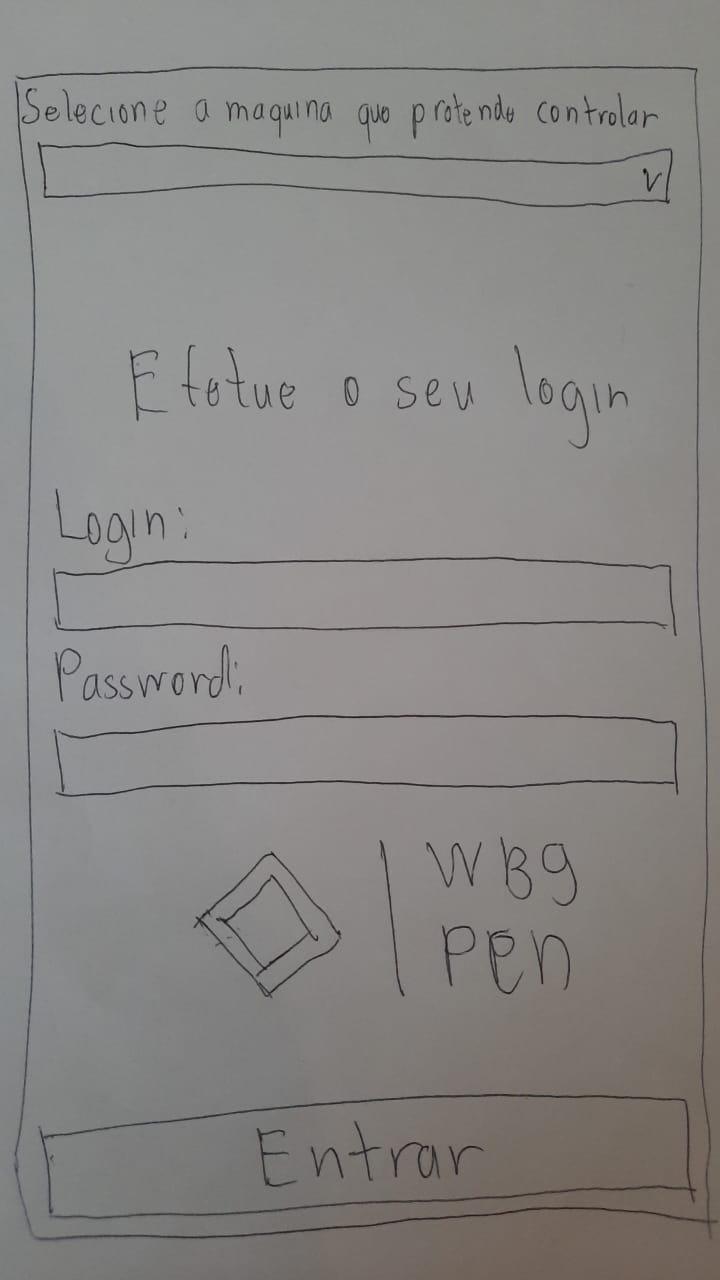 Selecione a maquina que pretende controlar
v
Efetue o seu login
Login:
Password:
WBg
Pen
Entrar